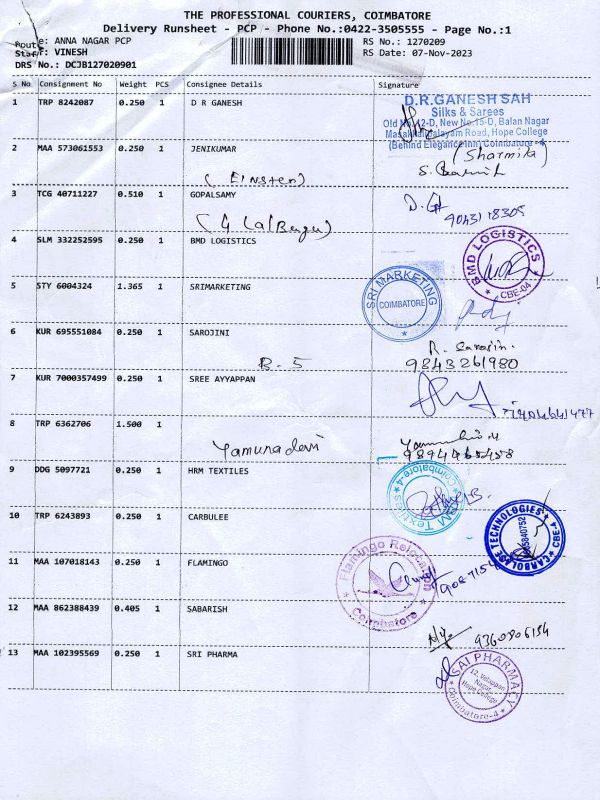 THE PROFESSIONAL COURIERS, COIMBATORE
Delivery Runsheet - PCP - Phone No.:0422-3505555 - Page No.:1
Route: ANNA NAGAR PCP
RS No.: 1270209
Staff: VINESH
RS Date: 07-Nov-2023
DRS No.: DCJB127020901
S No Consignment No Weight PCS Consignee Details Signature
1 TRP 8242087 0.250 1 D R GANESH
D.R.GANESH SAH
Silks & Sarees
Old No.12-D, New No.15-O, Balan Nagar
Masakkalipalayam Road, Hope College
(Behind Elegance Inn) Coimbatore-4
2 MAA 573061553 0.250 1 JENIKUMAR
(Sharmila)
(EINSTEN)
3 TCG 40711227 0.510 1 GOPALSAMY
9043118305
4 SLM 332252595 0.250 1 BMD LOGISTICS
BMD LOGISTICS
CBE-04
5 STY 6004324 1.365 1 SRIMARKETING
SRI MARKETING
COIMBATORE
6 KUR 695551084 0.250 1 SAROJINI
B. 5
9843261980
7 KUR 7000357499 0.250 1 SREE AYYAPPAN
8 TRP 6362706 1.500 1
Yamunadevi
9894465458
9 DDG 5097721 0.250 1 HRM TEXTILES
Coimbatore-4
Textiles
10 TRP 6243893 0.250 1 CARBULEE
CARBOLASE TECHNOLOGIES
CBE-4
11 MAA 107018143 0.250 1 FLAMINGO
Flamingo Relocation
Coimbatore
12 MAA 862388439 0.405 1 SABARISH
9360806154
13 MAA 102395569 0.250 1 SRI PHARMA
SAI PHARMACY
Nagar
Hope College
Coimbatore-4